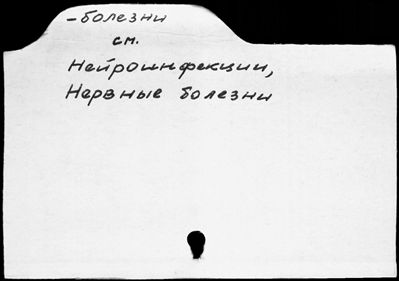 -болезни
см.
Нейроинфекции,
Нервные болезни